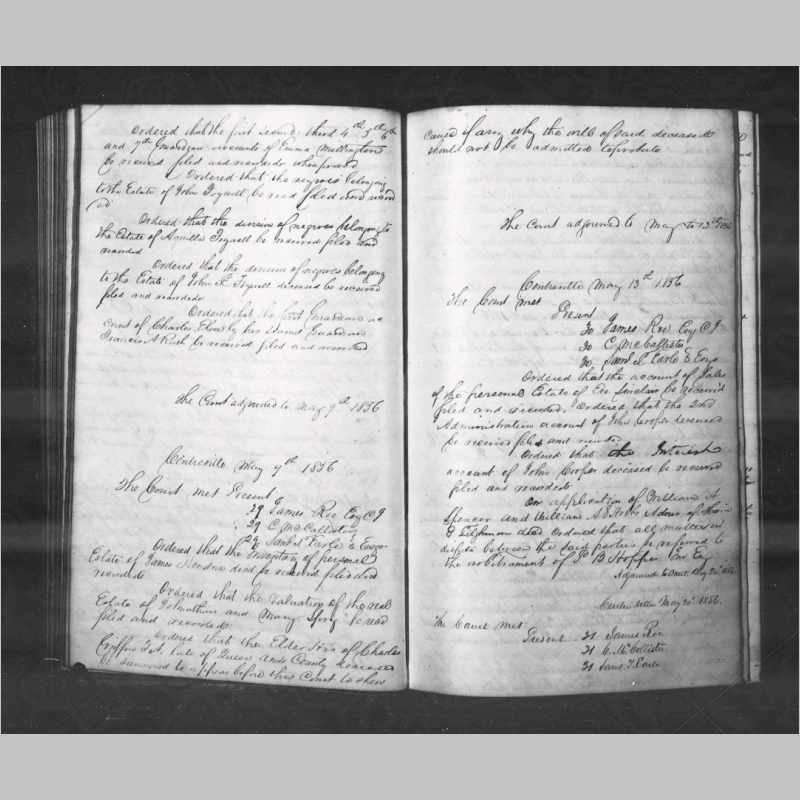 Ordered that the first second third 4th 5th 6th
and 7th Guardian accounts of Emma Millington
be received filed and recorded when passed
Ordered that the negroes belonging
to the Estate of John Tygnell be recd filed and record
ed
Ordered that the division of negroes belonging to
the Estate of Aquilla Tygnell be received filed and
recorded
Ordered that the division of negroes belonging
to the Estate of John Tygnell deceased be received
filed and recorded
Ordered that the first Guardian ac
count of Charles by his Guardian
Francis A Rich be received filed and recorded
The Court adjourned to May 9th 1856
Centreville May 9th 1856
The Court met Present
29 James Roe Esq C J
29 C McCallister
29 Saml T Earle & Esqs
Ordered that the Inventory of personal
Estate of James decd be received filed and
recorded
Ordered that the valuation of the real
Estate of Johnathan and Mary Spry be recd
filed and recorded
Ordered that the Elder of Charles
Griffin late of Queen Anns County deceased
be summoned to appear before this Court to shew
cause if any why the will of said deceased
should not be admitted to probate
The Court adjourned to May to 13th 1856
Centreville May 13th 1856
The Court met
Present
30 James Roe Esq C J
30 C McCallister
30 Saml T Earle & Esqs
Ordered that the account of Sales
of the personal Estate of Sinclair be received
filed and recorded. Ordered that the 2nd
Administration account of John Cooper deceased
be received filed and recorded
Ordered that the Interest
account of John Cooper deceased be received
filed and recorded
On application of William A
Spencer and William Admr of
decd Ordered that all matters in
dispute between the said parties be referred to
the arbitrament of B Hopper Esq
Adjourned to meet May 20th 1856
Centreville May 20th 1856.
The Court met
Present 31 James Roe
31 C. McCallister
31 Saml. T. Earle